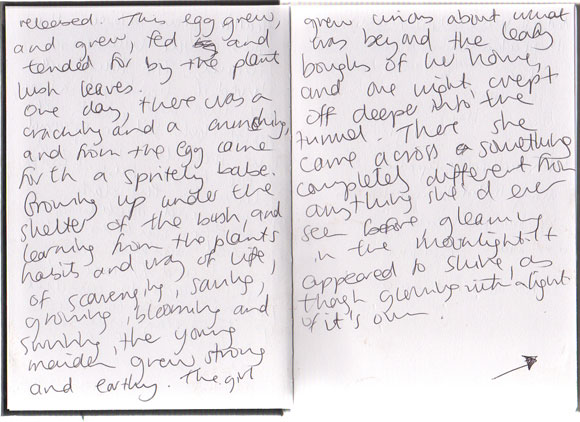 released. This egg grew,
and grew, fed and
tended for by the plant
lush leaves.
One day, there was a
cracking and a crunching,
and from the egg came
forth a spritely babe.
Growing up under the
shelter of the bush, and
learning from the plants
habits and way of life
of scavenging, saving,
growing, blooming and
shrinking, the young
maiden grew strong
and earthy. The girl
grew curious about what
was beyond the leafy
boughs of her home,
and one night, crept
off deeper into the
tunnel. There she
came across something
completely different from
anything she'd ever
seen before gleaming
in the moonlight. It
appeared to shine, as
though glowing with a light
of it's own.